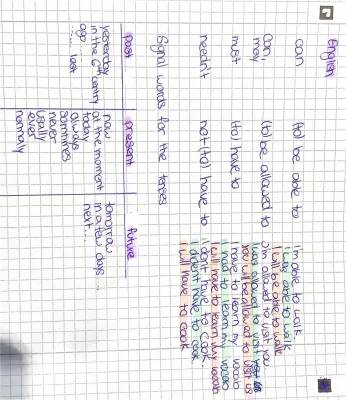 English
can (to) be able to
I'm able to walk.
I was able to walk.
I will be able to walk
can,
may (to) be allowed to
I'm allowed to visit you
I was allowed to visit
you will be allowed to visit us
must (to) have to
I have to learn my vocab
I had to learn my vocab
I will have to learn my vocab
needn't not (to) have to
I don't have to cook.
I didn't have to cook.
I will have to cook
Signal words for the tenses
past present future
yesterday now tomorrow
in the 6th century at the moment in a few days ...
ago today next...
... last always
sometimes
never
usually
ever
normally